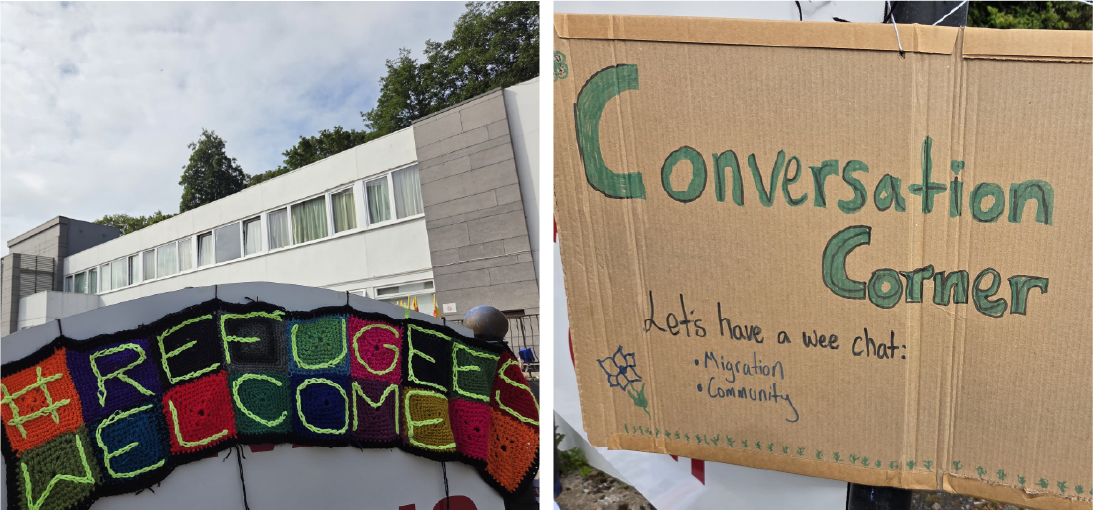 #REFUGEES
WELCOME
Conversation
Corner
Let's have a wee chat:
•Migration
•Community